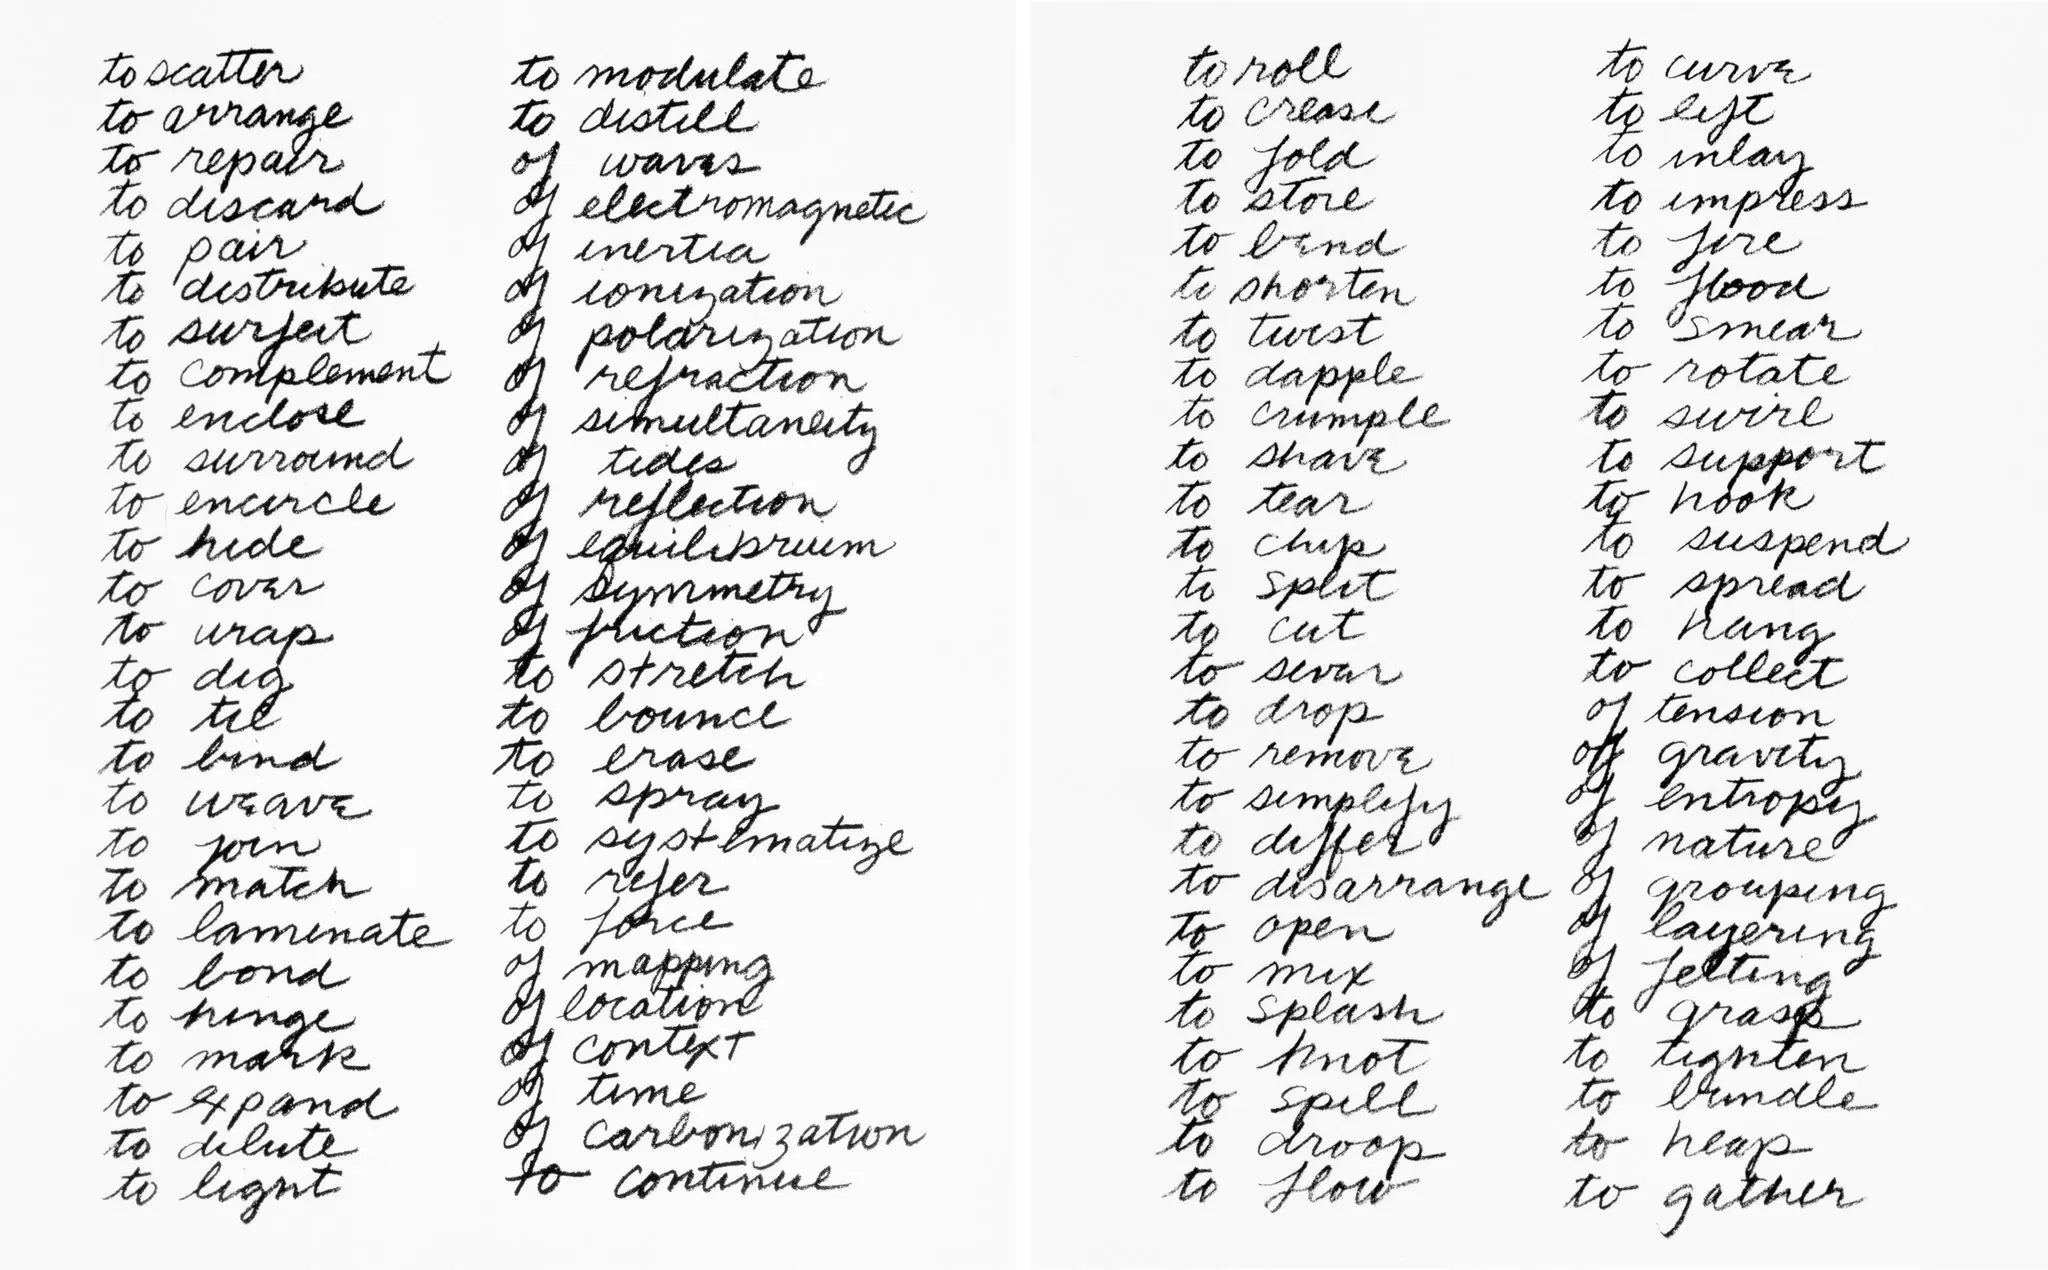 to scatter
to arrange
to repair
to discard
to pair
to distribute
to surfeit
to complement
to enclose
to surround
to encircle
to hide
to cover
to wrap
to dig
to tie
to bind
to weave
to join
to match
to laminate
to bond
to hinge
to mark
to expand
to dilute
to light
to modulate
to distill
of waves
of electromagnetic
of inertia
of ionization
of polarization
of refraction
of simultaneity
of tides
of reflection
of equilibrium
of symmetry
of friction
to stretch
to bounce
to erase
to spray
to systematize
to refer
to force
of mapping
of location
of context
of time
of carbonization
to continue
to roll
to crease
to fold
to store
to bend
to shorten
to twist
to dapple
to crumple
to shave
to tear
to chip
to split
to cut
to sever
to drop
to remove
to simplify
to differ
to disarrange
to open
to mix
to splash
to knot
to spill
to droop
to flow
to curve
to lift
to inlay
to impress
to fire
to flood
to smear
to rotate
to swirl
to support
to hook
to suspend
to spread
to hang
to collect
of tension
of gravity
of entropy
of nature
of grouping
of layering
of felting
to grasp
to tighten
to bundle
to heap
to gather